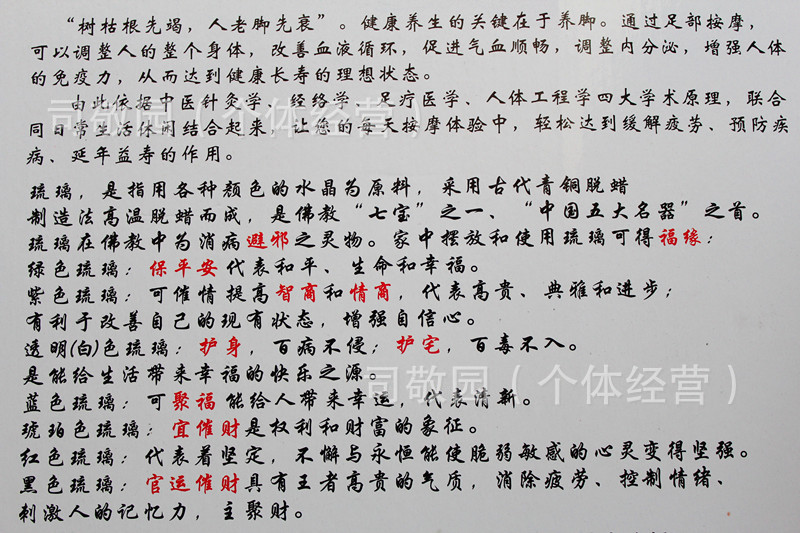 “树枯根先竭，人老脚先衰”。健康养生的关键在于养脚。通过足部按摩，
可以调整人的整个身体，改善血液循环，促进气血顺畅，调整内分泌，增强人体
的免疫力，从而达到健康长寿的理想状态。
由此依据中医针灸学、经络学、足疗医学、人体工程学四大学术原理，联合
同日常生活休闲结合起来，让您的每天按摩体验中，轻松达到缓解疲劳、预防疾
病、延年益寿的作用。
司敬园（个体经营）
琉璃，是指用各种颜色的水晶为原料，采用古代青铜脱蜡
制造法高温脱蜡而成，是佛教“七宝”之一、“中国五大名器”之首。
琉璃在佛教中为消病避邪之灵物。家中摆放和使用琉璃可得福缘：
绿色琉璃：保平安代表和平、生命和幸福。
紫色琉璃：可催情提高智商和情商，代表高贵、典雅和进步；
有利于改善自己的现有状态，增强自信心。
透明(白)色琉璃：护身，百病不侵；护宅，百毒不入。
是能给生活带来幸福的快乐之源。
司敬园（个体经营）
蓝色琉璃：可聚福能给人带来幸运，代表清新。
琥珀色琉璃：宜催财是权利和财富的象征。
红色琉璃：代表着坚定，不懈与永恒能使脆弱敏感的心灵变得坚强。
黑色琉璃：官运催财具有王者高贵的气质，消除疲劳、控制情绪、
刺激人的记忆力，主聚财。